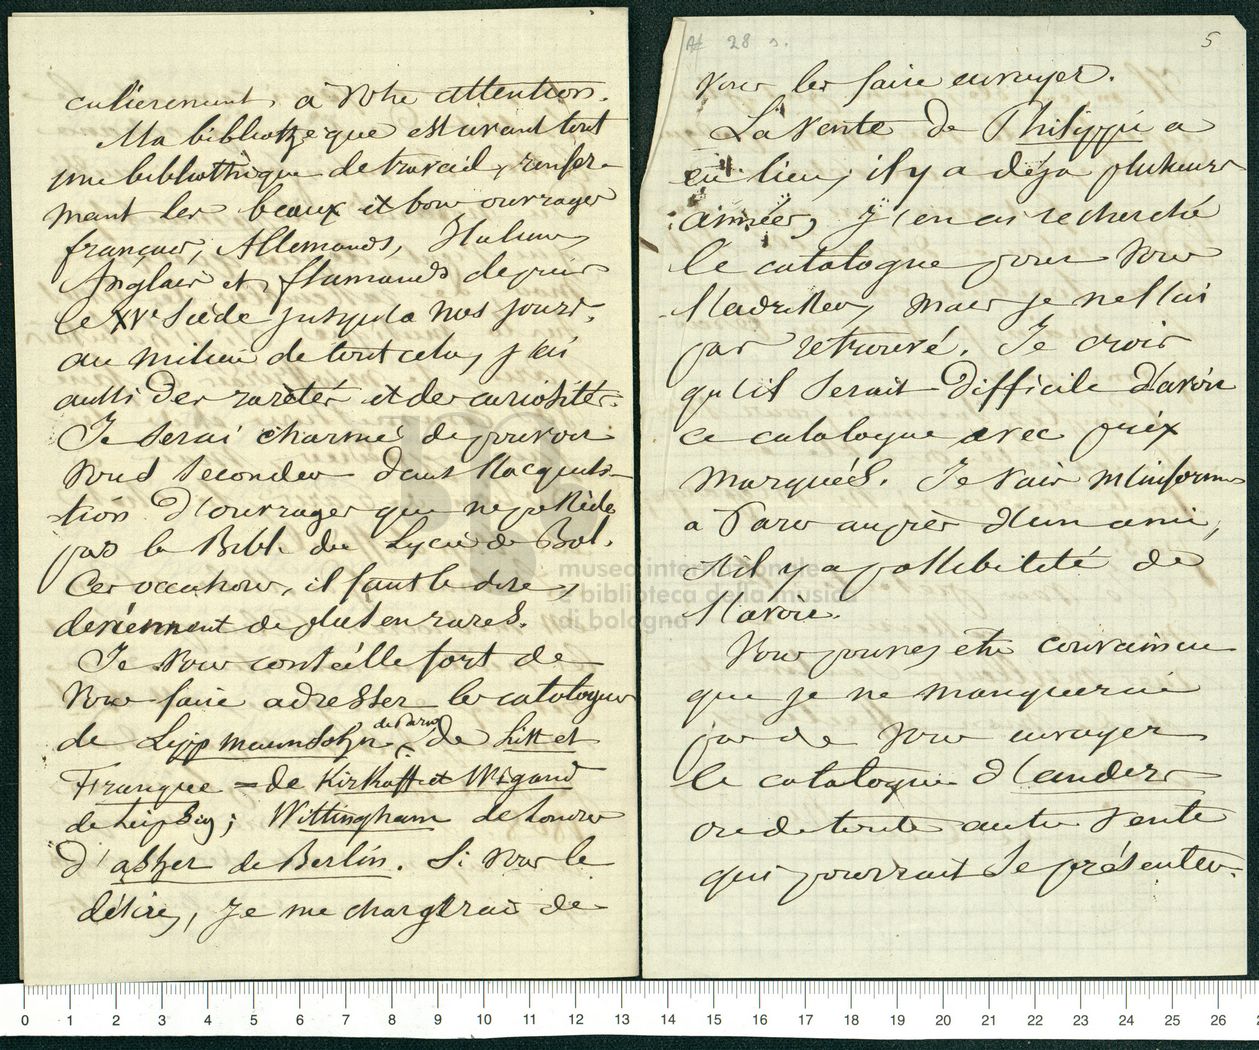 culierement à Votre attention.
Ma bibliothèque est avant tout
une bibliothèque de travail, renfer-
mant les beaux et bons ouvrages
français, Allemands, Italiens,
Anglais et flamands depuis
le XVe Siècle jusqu'à nos jours.
au milieu de tout cela, j'ai
aussi des raretés et des curiosités.
Je serai charmé de pouvoir
vous seconder dans l'acquisi-
tion d'ouvrages que ne possède
pas la Bibl. du Lycée de Bol.
Ces occasions, il faut le dire,
deviennent de plus en rares.
Je vous conseille fort de
vous faire adresser les catalogues
de Lipp mannsohn de Paris, de List et
Franque = de Kirkoff et Wigand
de Leipsig; Wittingham de Londres
d'asher de Berlin. Si vous le
désirez, je me chargerai de
At 28 s.
5
vous les faire envoyer.
La Vente de Philippi a
eu lieu, il y a déja plusieurs
années, j'en ai recherché
le catalogue pour vous
l'adresser, mais je ne l'ai
pas retrouvé. Je crois
qu'il serait difficile d'avoir
ce catalogue avec prix
marqués. Je vais m'informer
a Paris auprès d'un ami,
s'il y a possibilité de
l'avoir.
Vous pouvez être convaincu
que je ne manquerai
pas de vous envoyer
le catalogue d'anders
ou de toute autre vente
qui pourrait se présenter.
museo internazionale
e biblioteca della musica
di bologna
0 1 2 3 4 5 6 7 8 9 10 11 12 13 14 15 16 17 18 19 20 21 22 23 24 25 26